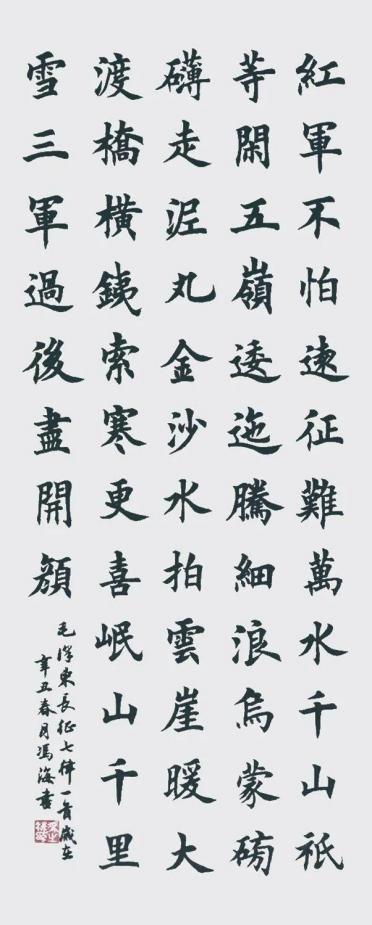 紅軍不怕逺征難萬水千山祇
等閑五嶺逶迤騰細浪烏蒙磅
礴走泥丸金沙水拍雲崖暖大
渡橋橫鐵索寒更喜岷山千里
雪三軍過後盡開顔
毛澤東長征七律一首歲在
辛丑春月馮海書